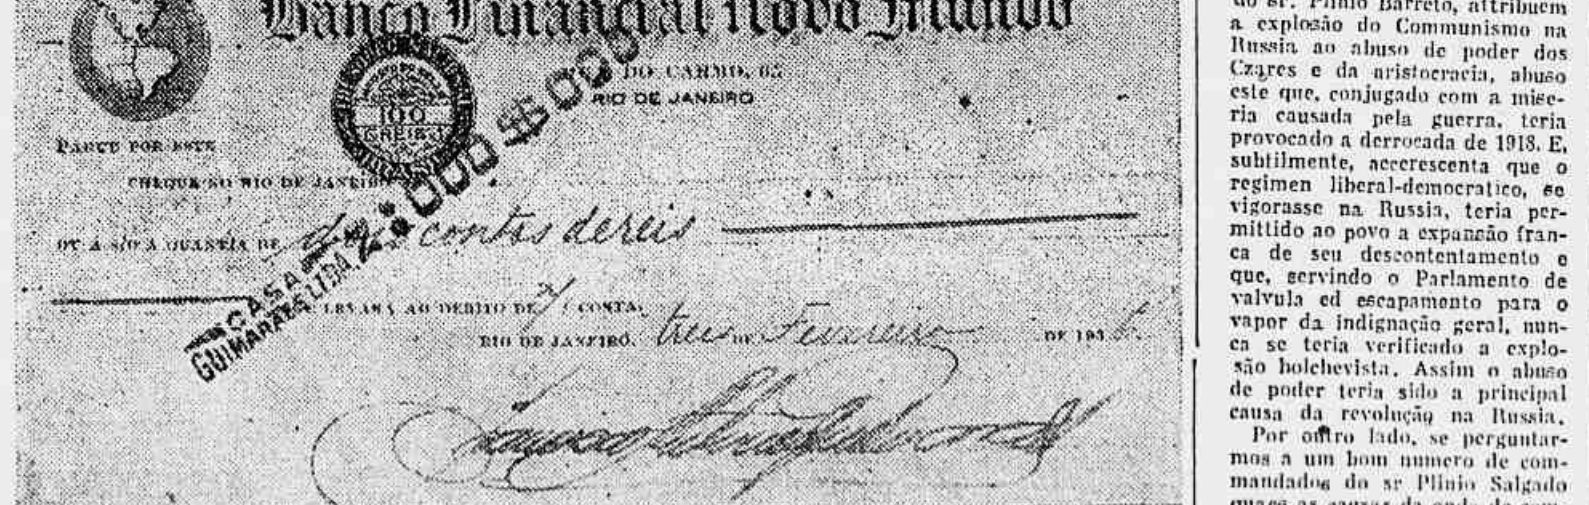 Banco Financial Novo Mundo
DO CARMO, 65
RIO DE JANEIRO
100
PAGUE POR ESTE
CHEQUE NO RIO DE JANEIRO
2:000$000
OU A S/O A QUANTIA DE dois contos de reis
CASA
GUIMARAES LTDA.
LEVARÁ AO DEBITO DE M/ CONTA.
RIO DE JANEIRO, tres DE Fevereiro DE 193
do sr. Plinio Barreto, attribuem
a explosão do Communismo na
Russia ao abuso de poder dos
Czares e da aristocracia, abuso
este que, conjugado com a mise-
ria causada pela guerra, teria
provocado a derrocada de 1918. E,
subtilmente, accerescenta que o
regimen liberal-democratico, se
vigorasse na Russia, teria per-
mittido ao povo a expansão fran-
ca de seu descontentamento e
que, servindo o Parlamento de
valvula ed escapamento para o
vapor da indignação geral, nun-
ca se teria verificado a explo-
são bolchevista. Assim o abuso
de poder teria sido a principal
causa da revolução na Russia.
Por outro lado, se perguntar-
mos a um bom numero de com-
mandados do sr Plinio Salgado